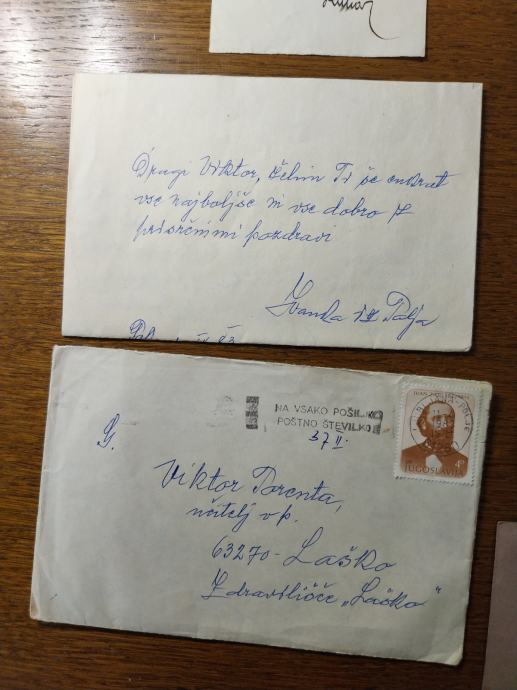 Dragi Viktor, želim Ti še enkrat
vse najboljše in vse dobro z
prisrčnimi pozdravi
Ivanka iz Polja
NA VSAKO POŠILKO
POŠTNO ŠTEVILKO!
37 II.
JUGOSLAVIJA
G.
Viktor Brenta,
učitelj v p.
63270 - Laško
Zdravilišče „Laško"